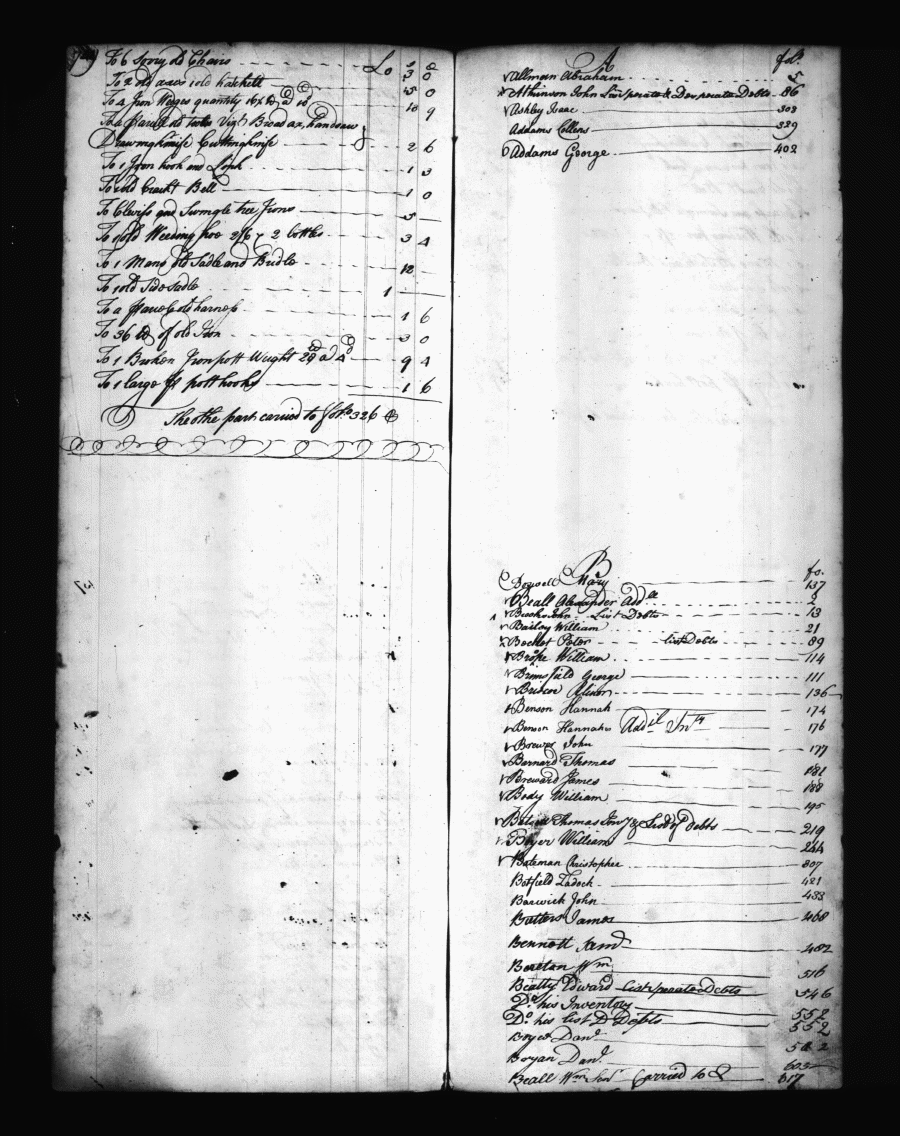 To 6 Sorry old Chairs £0 3 0
To 2 old axes 1 old hatchett 5 0
To 4 Iron Wedges quantity 10 9
To a parcell old tools Vizt. Broad ax, handsaw
Drawing knife Cuttingknife 2 6
To 1 Iron hook and Link 1 3
To 1 old Crackt Bell 1 0
To Cleviss and Swingle tree Irons 5 —
To 1 old Weeding hoe 2/6 & 2 bottles 3 4
To 1 Mans old Sadle and Bridle 12 —
To 1 old Side Sadle 1 —
To a parcel old harness 1 6
To 36 lb of old Iron 3 0
To 1 Broken Iron pott Weight 28 lb a 4d 9 4
To 1 large pr potthooks 1 6
The othe part carried to folo. 326
A folo.
Allman Abraham 5
Atkinson John List sperate & Desperate Debts 86
Ashley Isaac 303
Addams Collens 339
Addams George 402
B fo.
Dowell Mary 137
Beall Alexander Addl 2
Brooke John List Debts 13
Bailey William 21
Bochet Peter list Debts 89
Brope William 114
Bromfield George 111
Briscoe Alison 136
Benson Hannah 174
Benson Hannah Addil Inty 176
Brewer John 177
Barnard Thomas 181
Breward James 188
Body William 195
Thomas Invy & List of Debts 219
Boyer William 244
Bateman Christopher 307
Botfield Zadock 421
Barwick John 433
Butters James 468
Bennett 482
Bereton Wm 516
Beatty Edward list sperate Debts 546
Do. his Inventory 552
Do. his list D Debts 552
Boyer Danl. 562
Boyan Danl. 603
Beall Wm Senr Carried to & 617